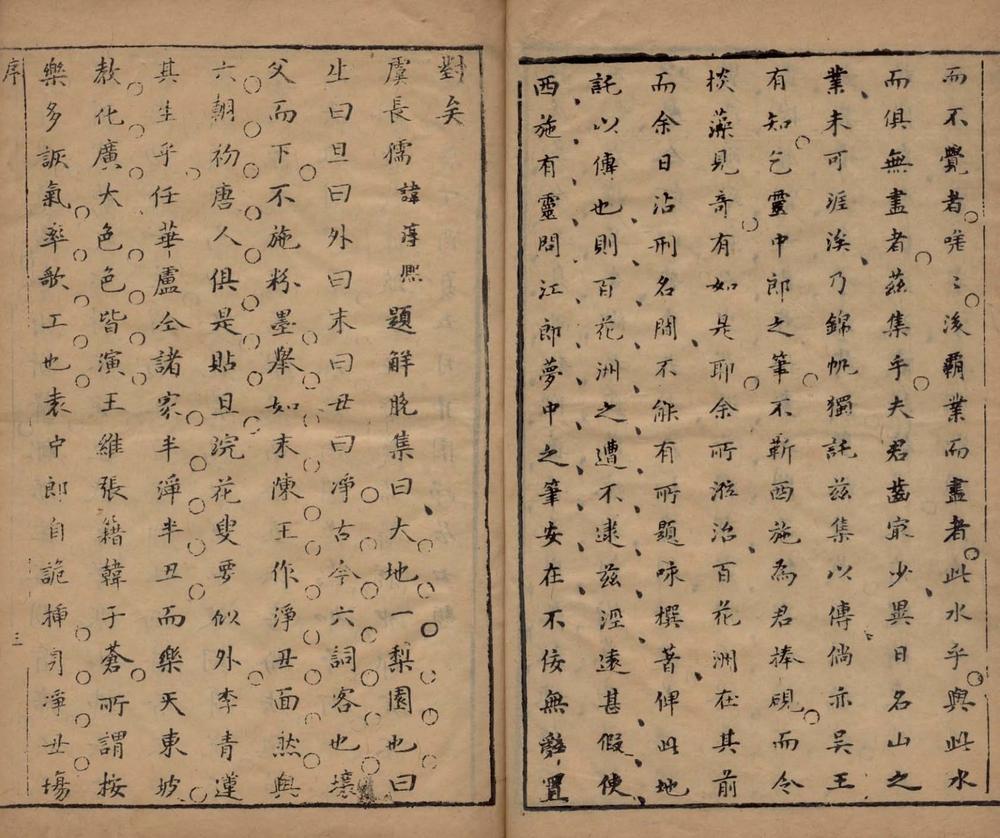 而不覺者嗟〻後霸業而盡者此水乎與此水
而俱無盡者茲集乎夫君齒冣少異日名山之
業未可涯涘乃錦帆獨託茲集以傳倘亦吳王
有知乞靈中郎之筆不靳西施為君捧硯而令
掞藻見奇有如是耶余所涖治百花洲在其前
而余日沾刑名間不能有所題味撰著俾此地
託以傳也則百花洲之遭不逮茲涇遠甚假使
西施有靈問江郎夢中之筆安在不佞無辭置
對矣
虞長孺諱淳熙題解脫集曰大地一梨園也曰
生曰旦曰外曰末曰丑曰淨古今六詞客也壤
父而下不施粉墨舉如末陳王作淨丑面然與
六朝初唐人俱是貼旦浣花叟要似外李青蓮
其生乎任華盧仝諸家半淨半丑而樂天東坡
教化廣大色色皆演王維張籍韓子蒼所謂按
樂多詼氣率歌工也袁中郎自詭插身淨丑場
序
三